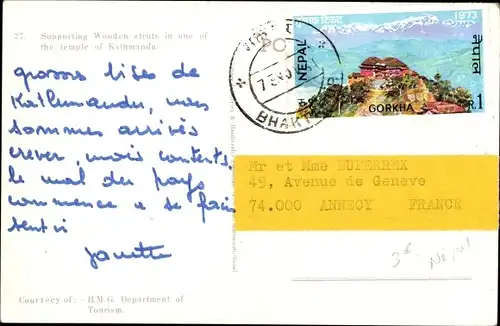 27. Supporting Wooden struts in one of
the temple of Kathmandu.
grosses bises de
Kathmandu, nous
sommes arrivés
crever, mais contents.
le mal du pays
commence a se faire
sentir
Courtesy of: - H.M.G. Department of
Tourism.
1973
NEPAL
नेपाल
GORKHA
R.1
BHAKT
Mr et Mme DUPERREX
49, Avenue de Geneve
74.000 ANNECY FRANCE
3€ Népal